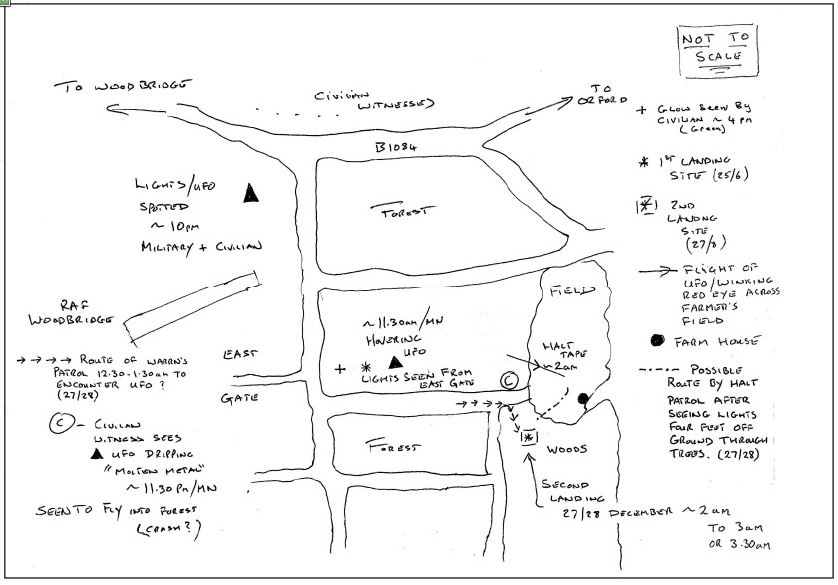 NOT TO
SCALE
TO WOODBRIDGE
CIVILIAN
WITNESSES
TO
ORFORD
B1084
+ GLOW SEEN BY
CIVILIAN ~ 4 PM
(GREEN)
* 1ST LANDING
SITE (25/6)
|*| 2ND
LANDING
SITE
(27/8)
→ FLIGHT OF
UFO/WINKING
RED EYE ACROSS
FARMER'S
FIELD
● FARM HOUSE
-·-·- POSSIBLE
ROUTE BY HALT
PATROL AFTER
SEEING LIGHTS
FOUR FEET OFF
GROUND THROUGH
TREES. (27/28)
LIGHTS/UFO
SPOTTED
~ 10PM
MILITARY + CIVILIAN
FOREST
RAF
WOODBRIDGE
FIELD
~ 11.30AM/MN
HOVERING
UFO
+ * LIGHTS SEEN FROM
EAST GATE
HALT
TAPE
~2AM
C
EAST
GATE
→→→→ ROUTE OF WARRN'S
PATROL 12.30-1.30AM TO
ENCOUNTER UFO?
(27/28)
C - CIVILIAN
WITNESS SEES
▲ UFO DRIPPING
"MOLTEN METAL"
~ 11.30 PM/MN
SEEN TO FLY INTO FOREST
(CRASH?)
FOREST
*
WOODS
SECOND
LANDING
27/28 DECEMBER ~ 2 AM
TO 3AM
OR 3.30AM